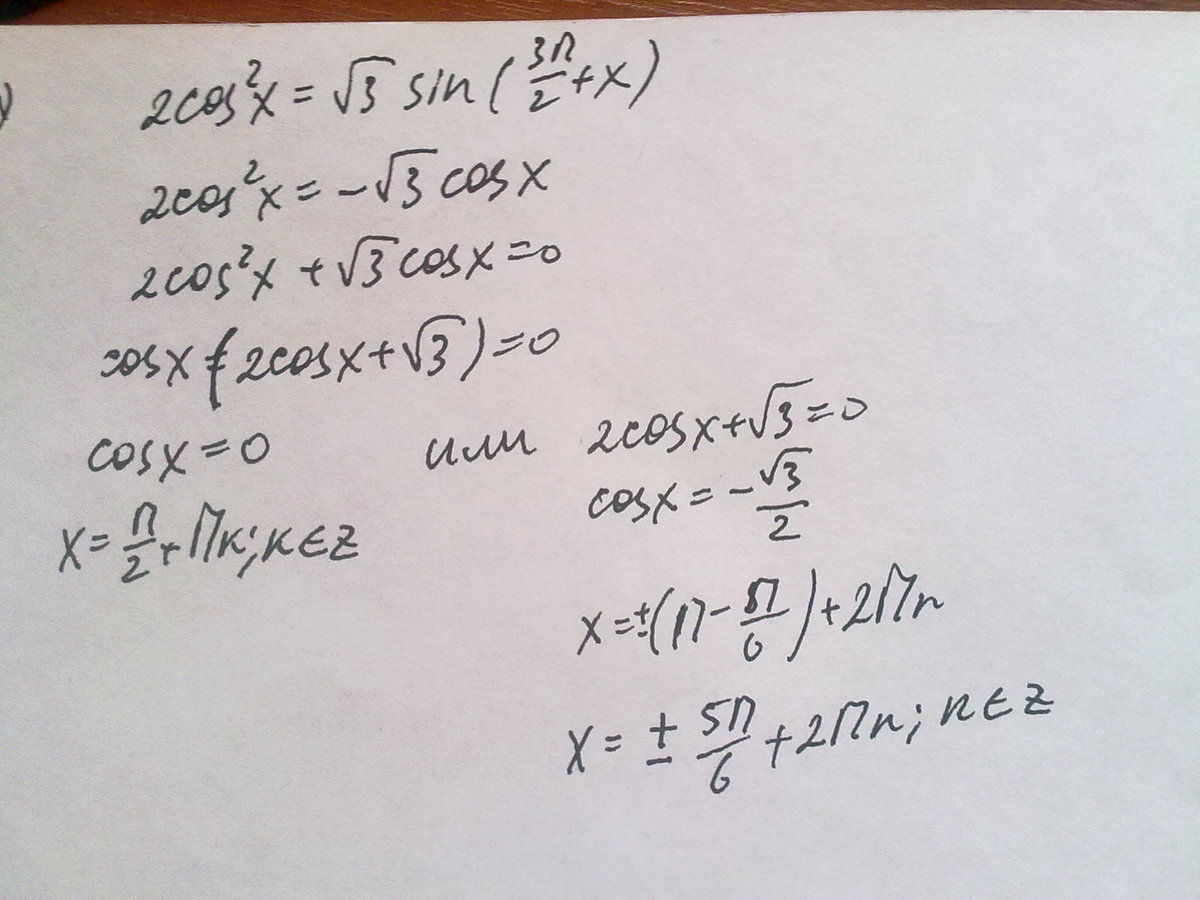 )
2cos²x = √3 sin(3π/2 + x)
2cos²x = -√3 cosx
2cos²x + √3 cosx = 0
cosx(2cosx + √3) = 0
cosx = 0 или 2cosx + √3 = 0
cosx = -√3/2
x = π/2 + πк; к ∈ Z
x = ±(π - π/6) + 2πn
x = ± 5π/6 + 2πn; n ∈ Z